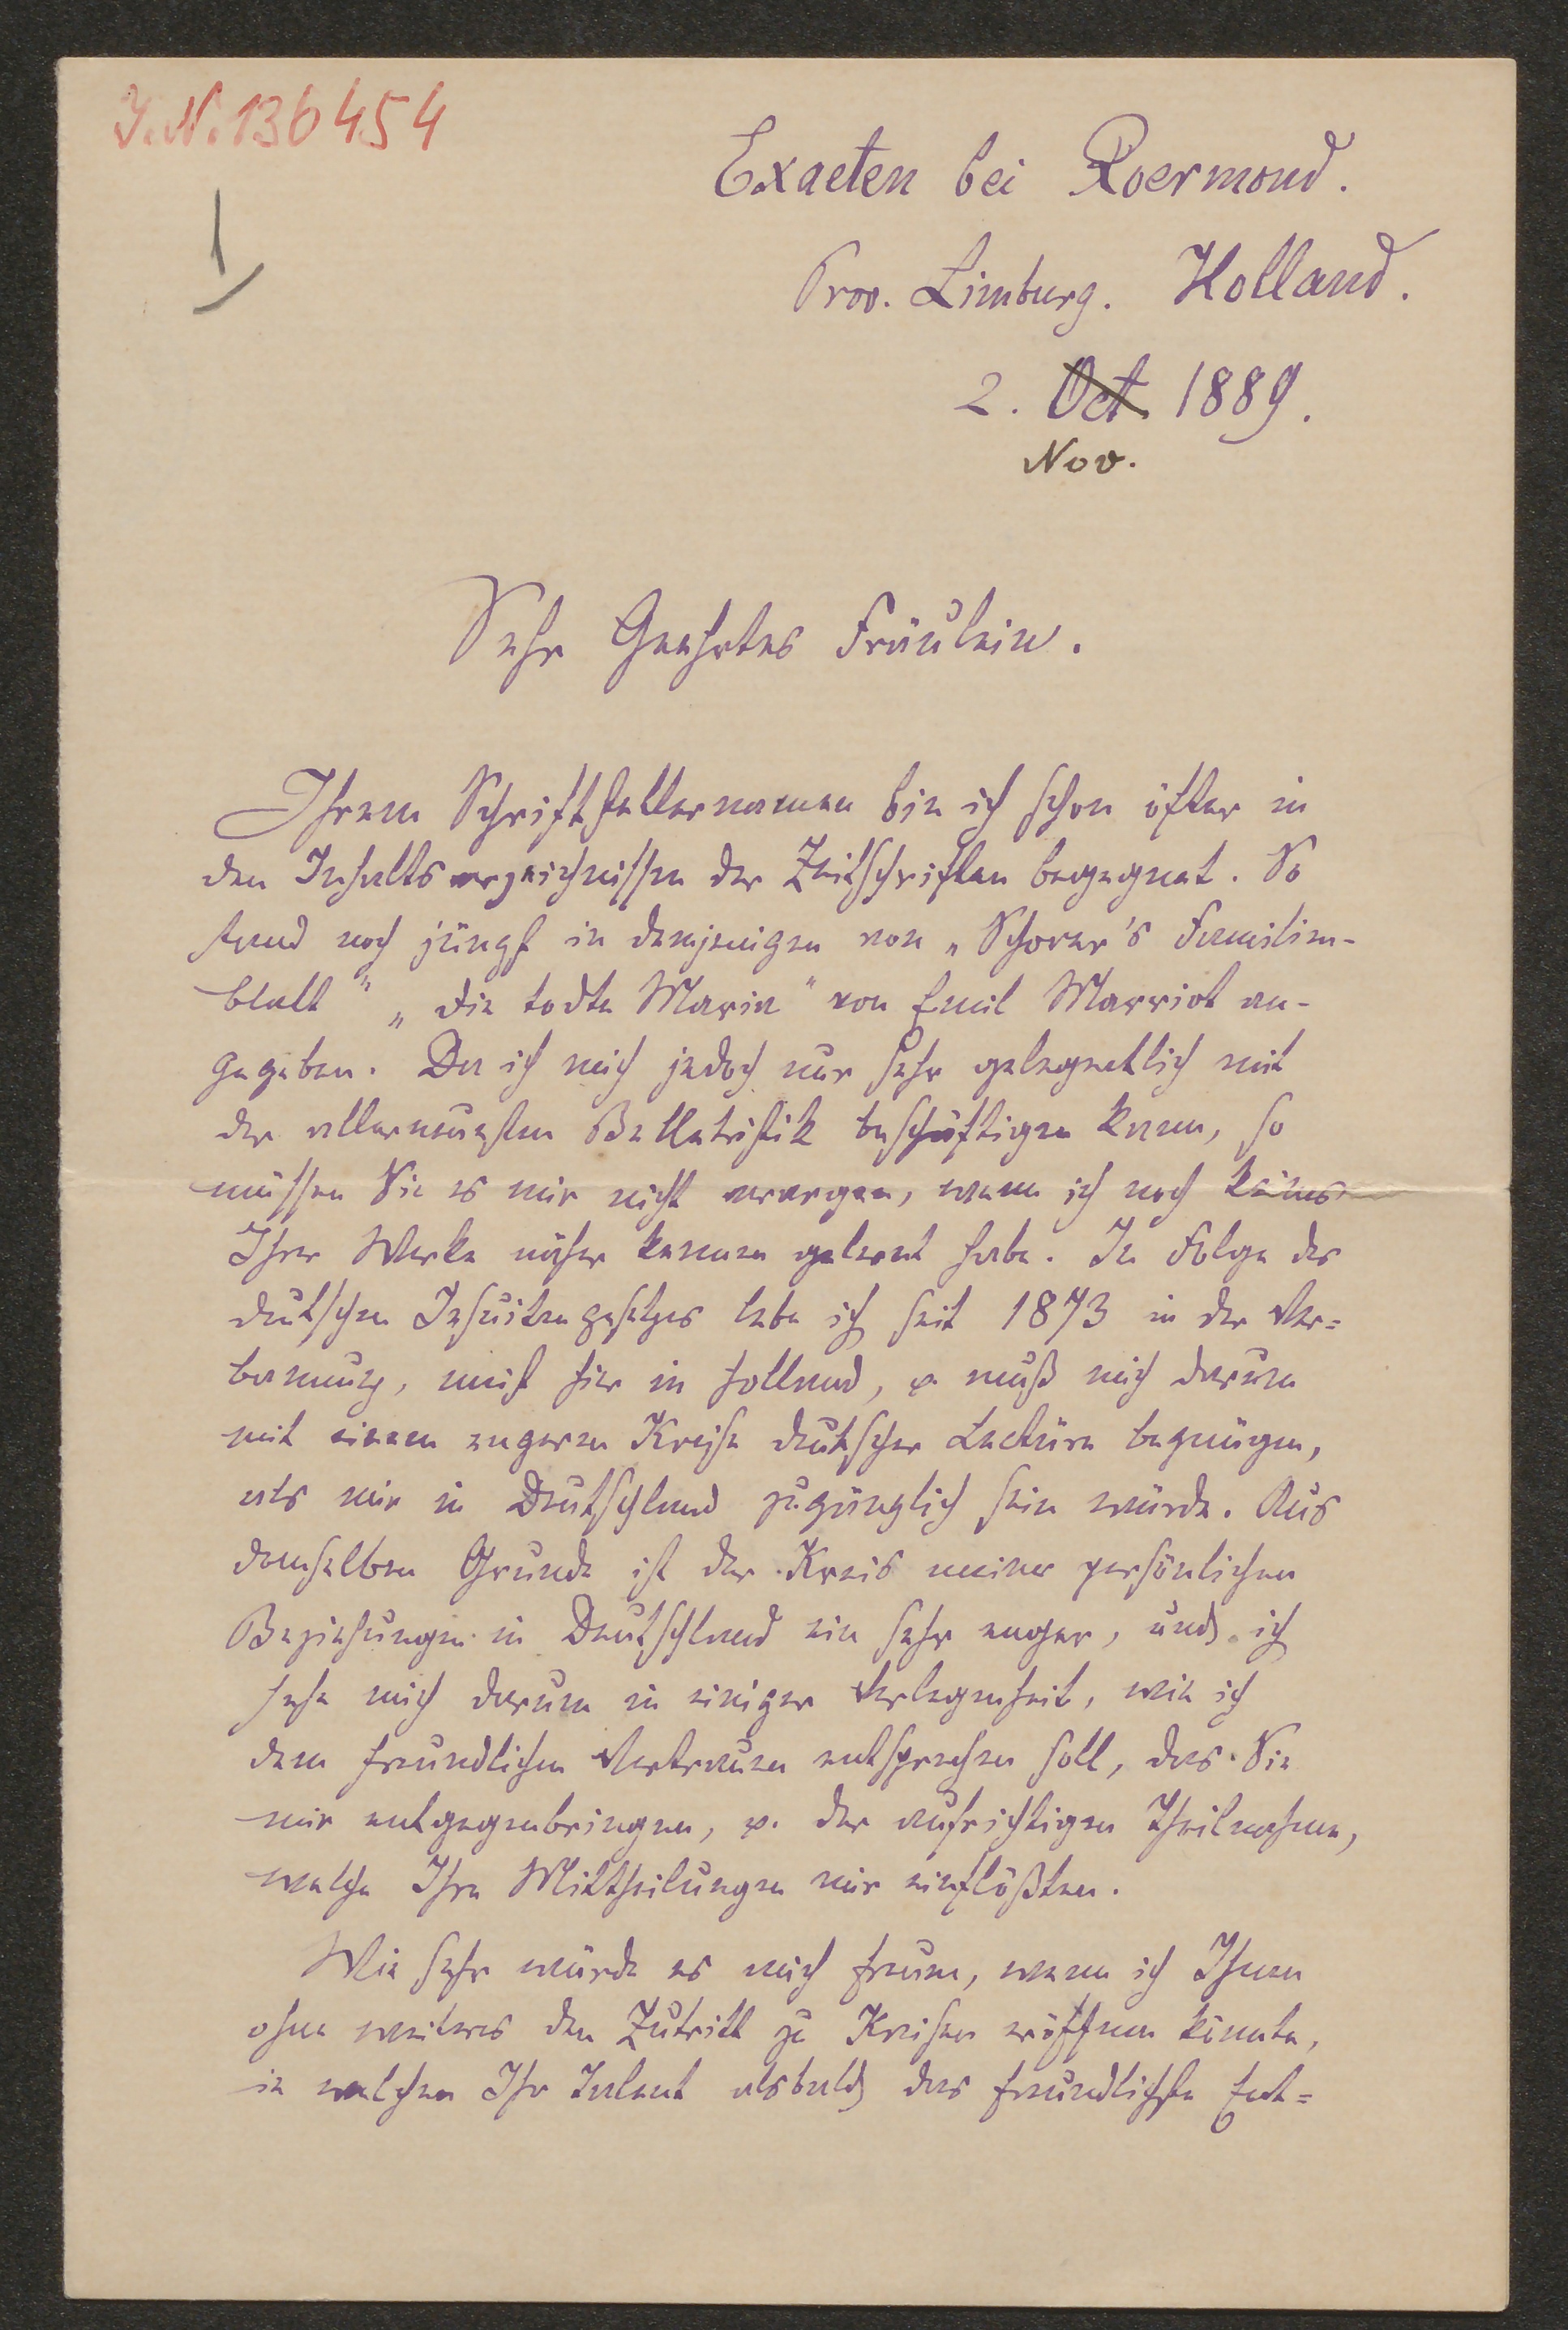 I.N. 136454
1
Exaeten bei Roermond.
Prov. Limburg. Holland.
2. Oct. 1889.
Nov.
Sehr Geehrtes Fräulein.
Ihrem Schriftstellernamen bin ich schon öfter in
den Inhaltsverzeichnissen der Zeitschriften begegnet. So
fand noch jüngst in demjenigen von „Schorer's Familien-
blatt" „die todte Maria" von Emil Marriot an-
gegeben. Da ich mich jedoch nur sehr gelegentlich mit
der allerneuesten Belletristik beschäftigen kann, so
müssen Sie es mir nicht verargen, wenn ich noch keines
Ihrer Werke näher kennen gelernt habe. In Folge des
deutschen Jesuitengesetzes lebe ich seit 1873 in der Ver-
bannung, meist hier in Holland, u. muß mich darum
mit einem engeren Kreise deutscher Lectüre begnügen,
als mir in Deutschland zugänglich sein würde. Aus
demselben Grunde ist der Kreis meiner persönlichen
Beziehungen in Deutschland ein sehr enger, und ich
sehe mich darum in einiger Verlegenheit, wie ich
dem freundlichen Vertrauen entsprechen soll, das Sie
mir entgegenbringen, u. der aufrichtigen Theilnahme,
welche Ihre Mittheilungen mir einflößten.
Wie sehr würde es mich freuen, wenn ich Ihnen
ohne weiteres den Zutritt zu Kreisen eröffnen könnte,
in welchen Ihr Talent alsbald das freundlichste Ent-